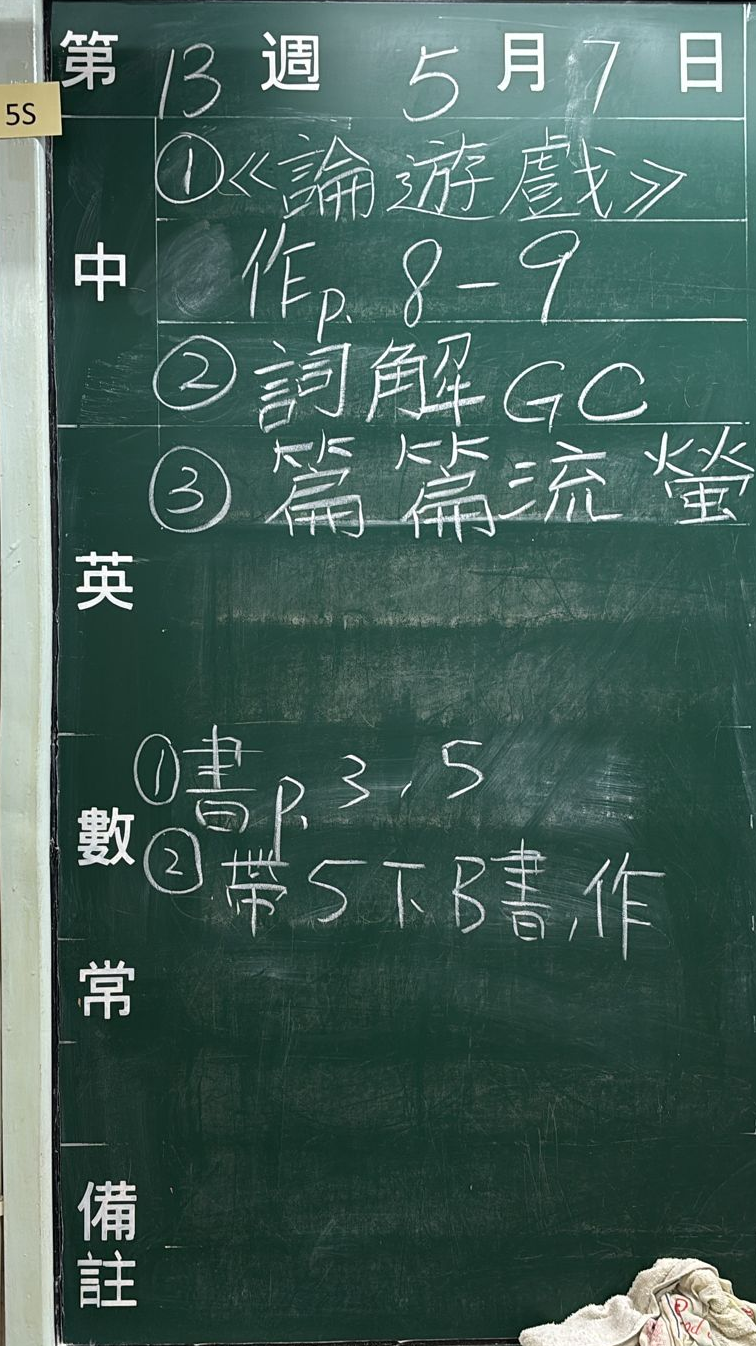 第 13 週 5 月 7 日
5S
中
①《論遊戲》
作p. 8-9
②詞解GC
③篇篇流螢
英
數
①書p. 3, 5
②帶5下B書,作
常
備註